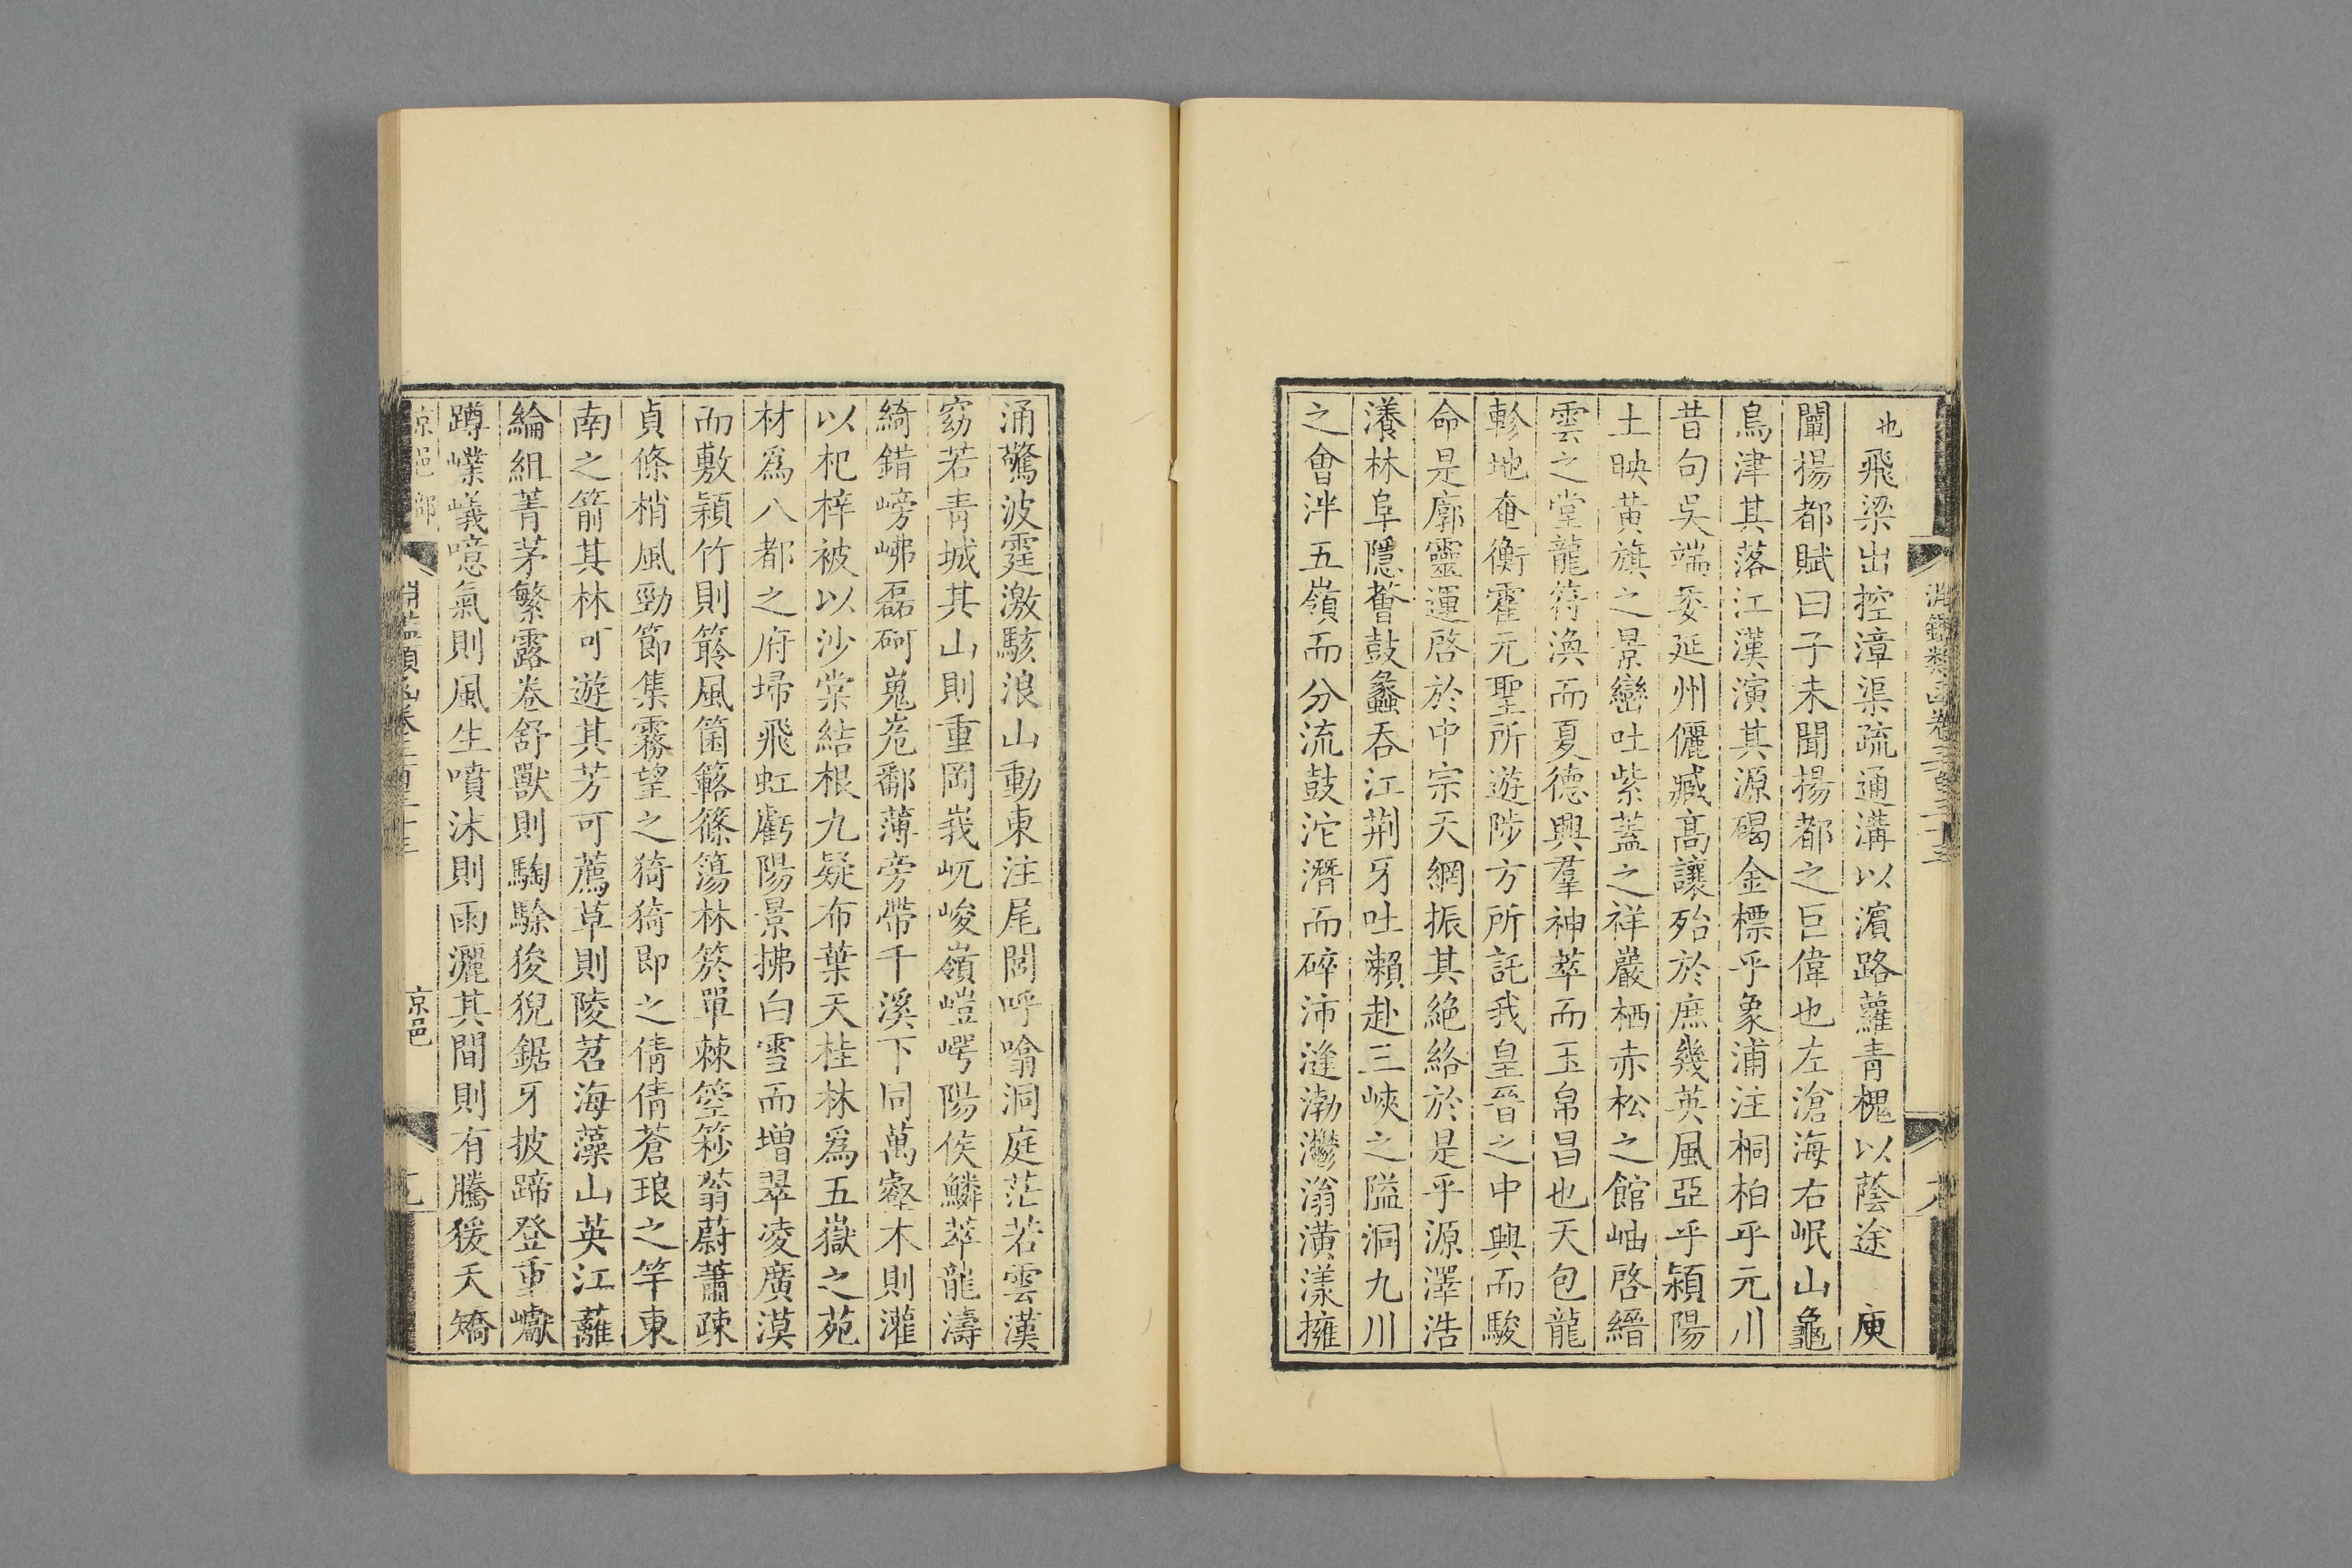 也飛梁出控漳渠疏通溝以濱路蘿青槐以蔭途　庾
闡揚都賦曰子未聞揚都之巨偉也左滄海右岷山龜
鳥津其落江漢演其源碣金標乎象浦注桐柏乎元川
昔句吳端委延州儷臧高讓殆於庶幾英風亞乎潁陽
土映黃旗之景巒吐紫蓋之祥巖栖赤松之館岫啓縉
雲之堂龍符渙而夏德興羣神萃而玉帛昌也天包龍
軫地奄衡霍元聖所遊陟方所託我皇晉之中興而駿
命是廓靈運啓於中宗天網振其絕絡於是乎源澤浩
瀁林阜隱薈鼓蠡吞江荆牙吐瀨赴三峽之隘洞九川
之會泮五嶺而分流鼓沱潛而碎沛漨渤灪滃潢漾擁
涌驚波霆激駭浪山動東注尾閭呼噏洞庭茫若雲漢
窈若青城其山則重岡峩屼峻嶺嵦崿陽侯鱗萃龍濤
綺錯嵭岪磊砢嵬峗鄱薄旁帶千溪下同萬壑木則灌
以杞梓被以沙棠結根九疑布葉天桂林爲五嶽之苑
材爲八都之府埽飛虹虧陽景拂白雪而增翠凌廣漠
而敷穎竹則簩風箘簵篠簜林箊單棘箜䈰蓊蔚蕭疎
貞條梢風勁節集霧望之猗猗即之倩倩蒼琅之竿東
南之箭其林可遊其芳可薦草則陵苕海藻山英江蘺
綸組菁茅繁露卷舒獸則騊駼狻猊鋸牙披蹄登重巘
蹲嶫嶬噫氣則風生噴沫則雨灑其間則有騰猨夭矯
京邑部
淵鑑類函卷三百三十三
京邑